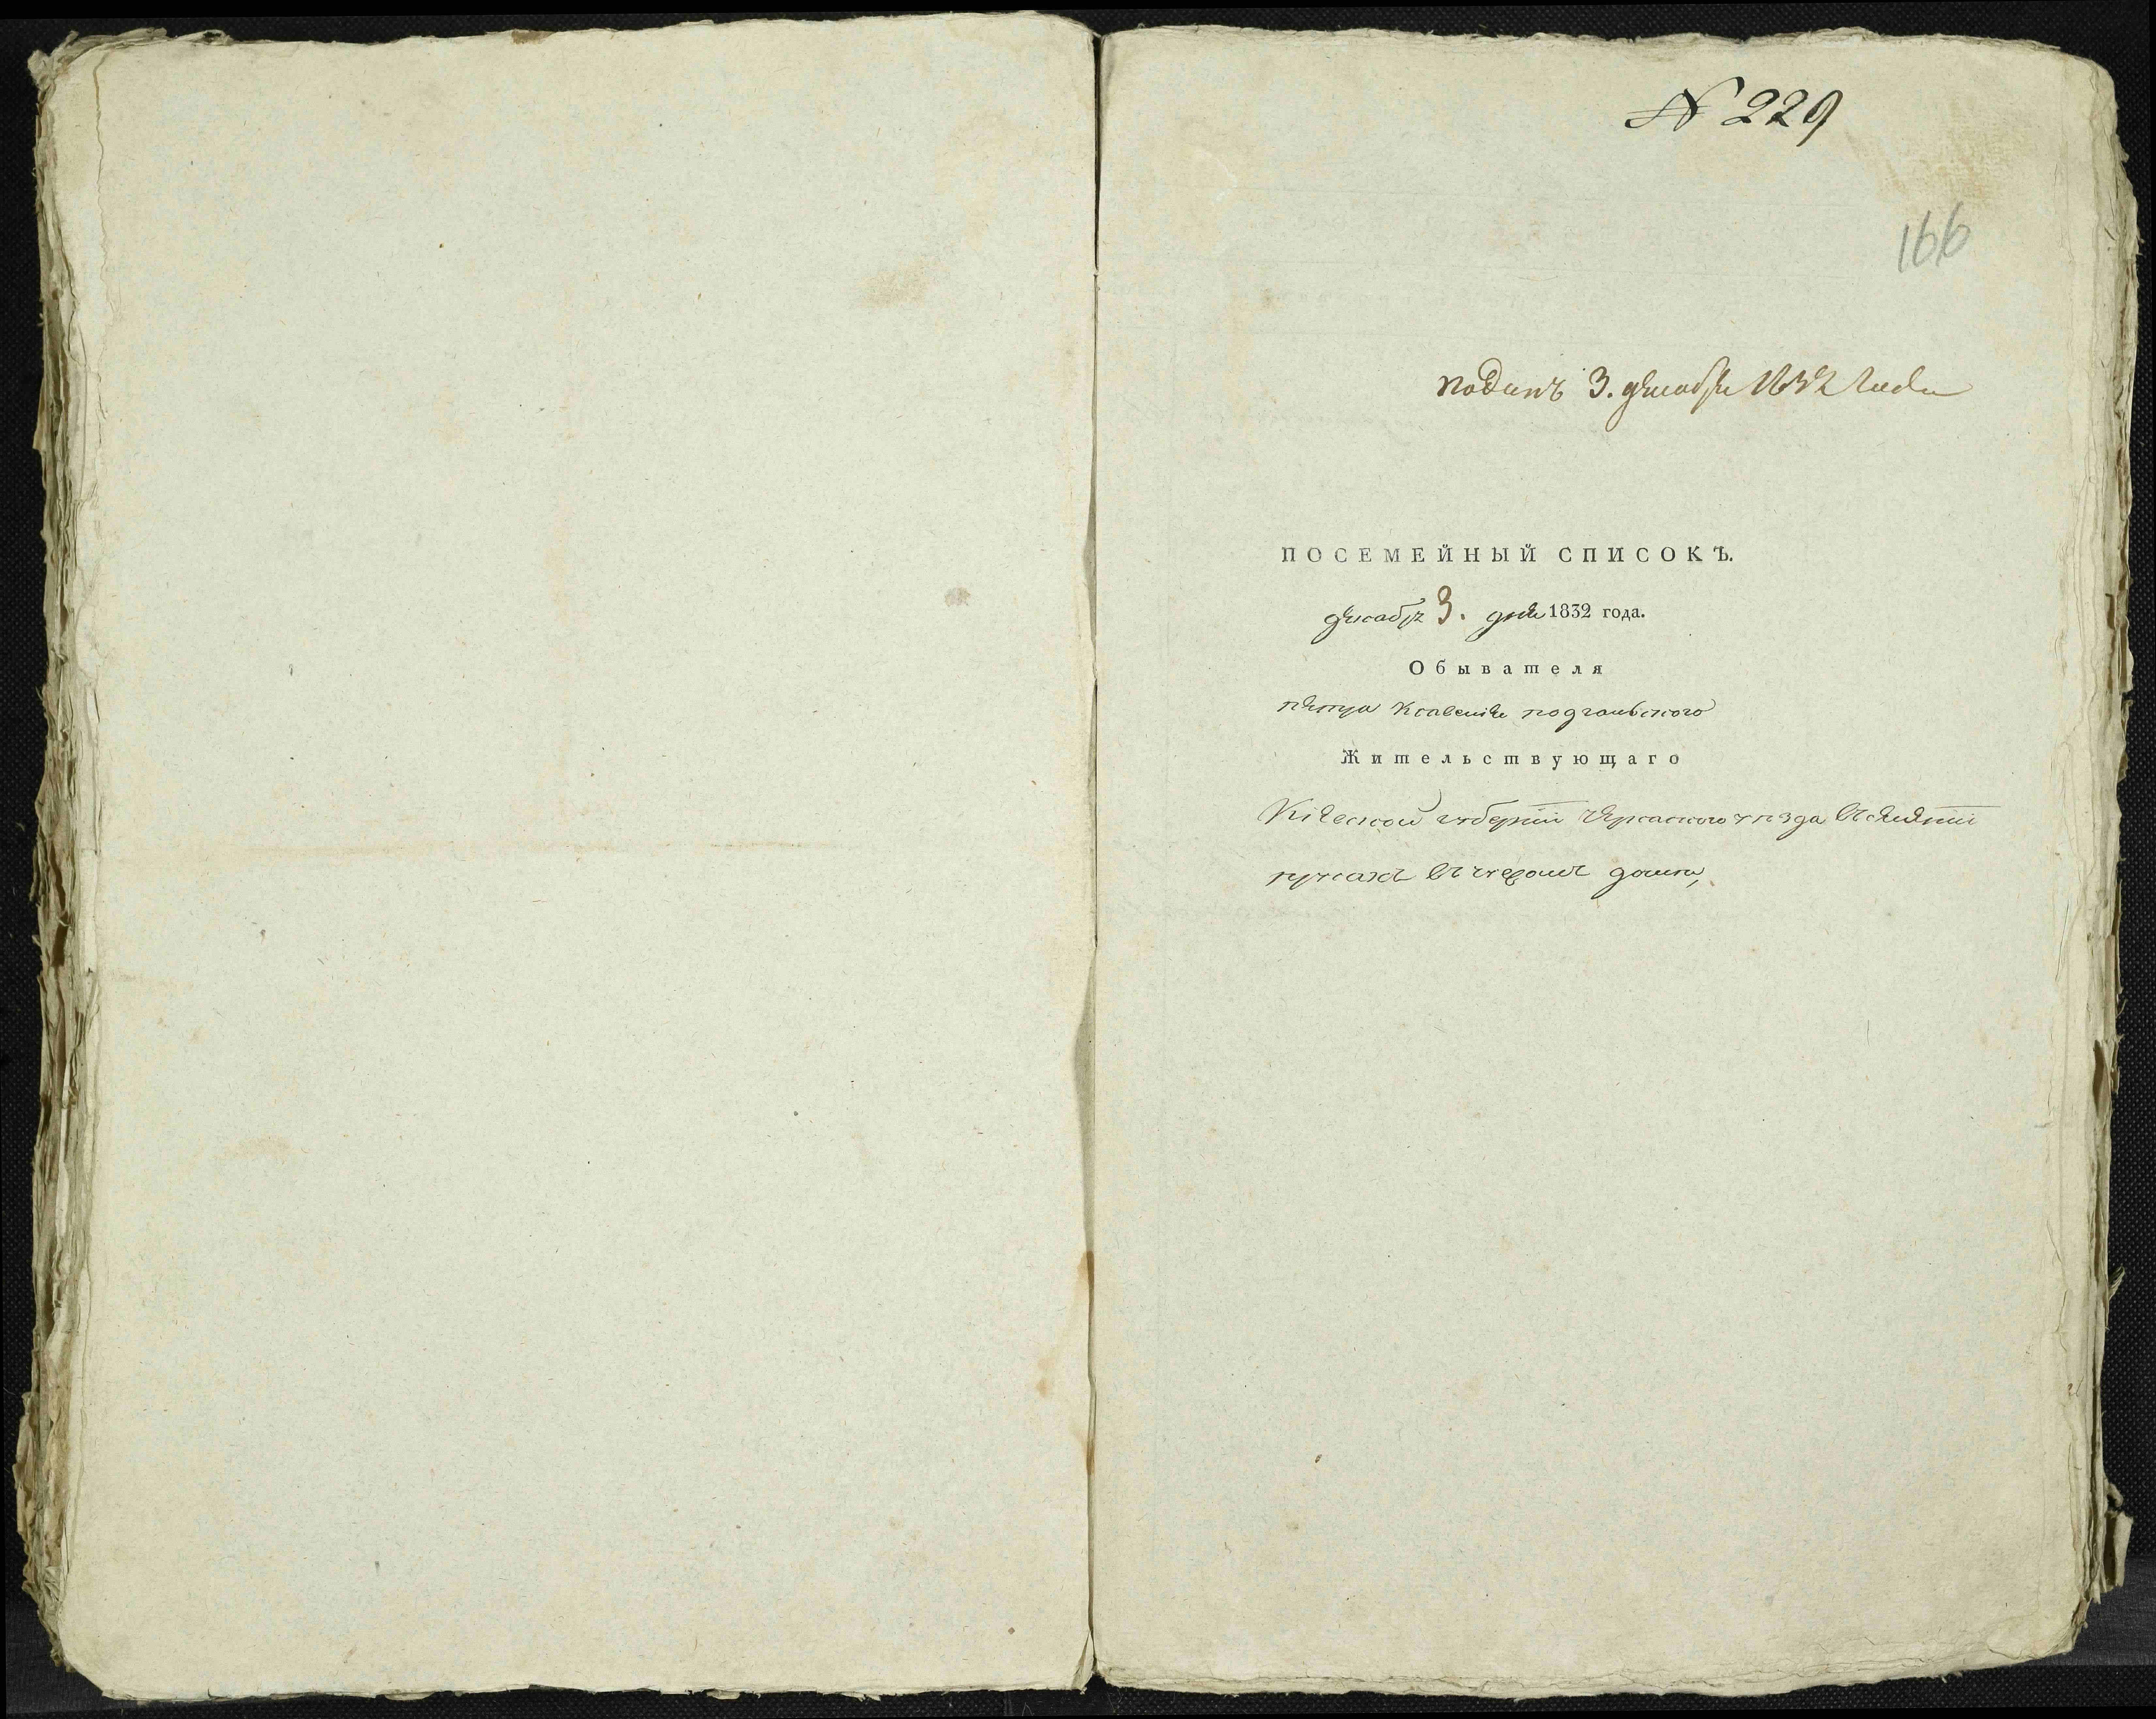 N 229
166
подань 3. декабря 1832 года
ПОСЕМЕЙНЫЙ СПИСОКЪ.
декабря 3. дня 1832 года.
Обывателя
петра подгаевского
Жительствующаго
Кіевской губерніи Черкаского уезда
въ чужомъ доми,